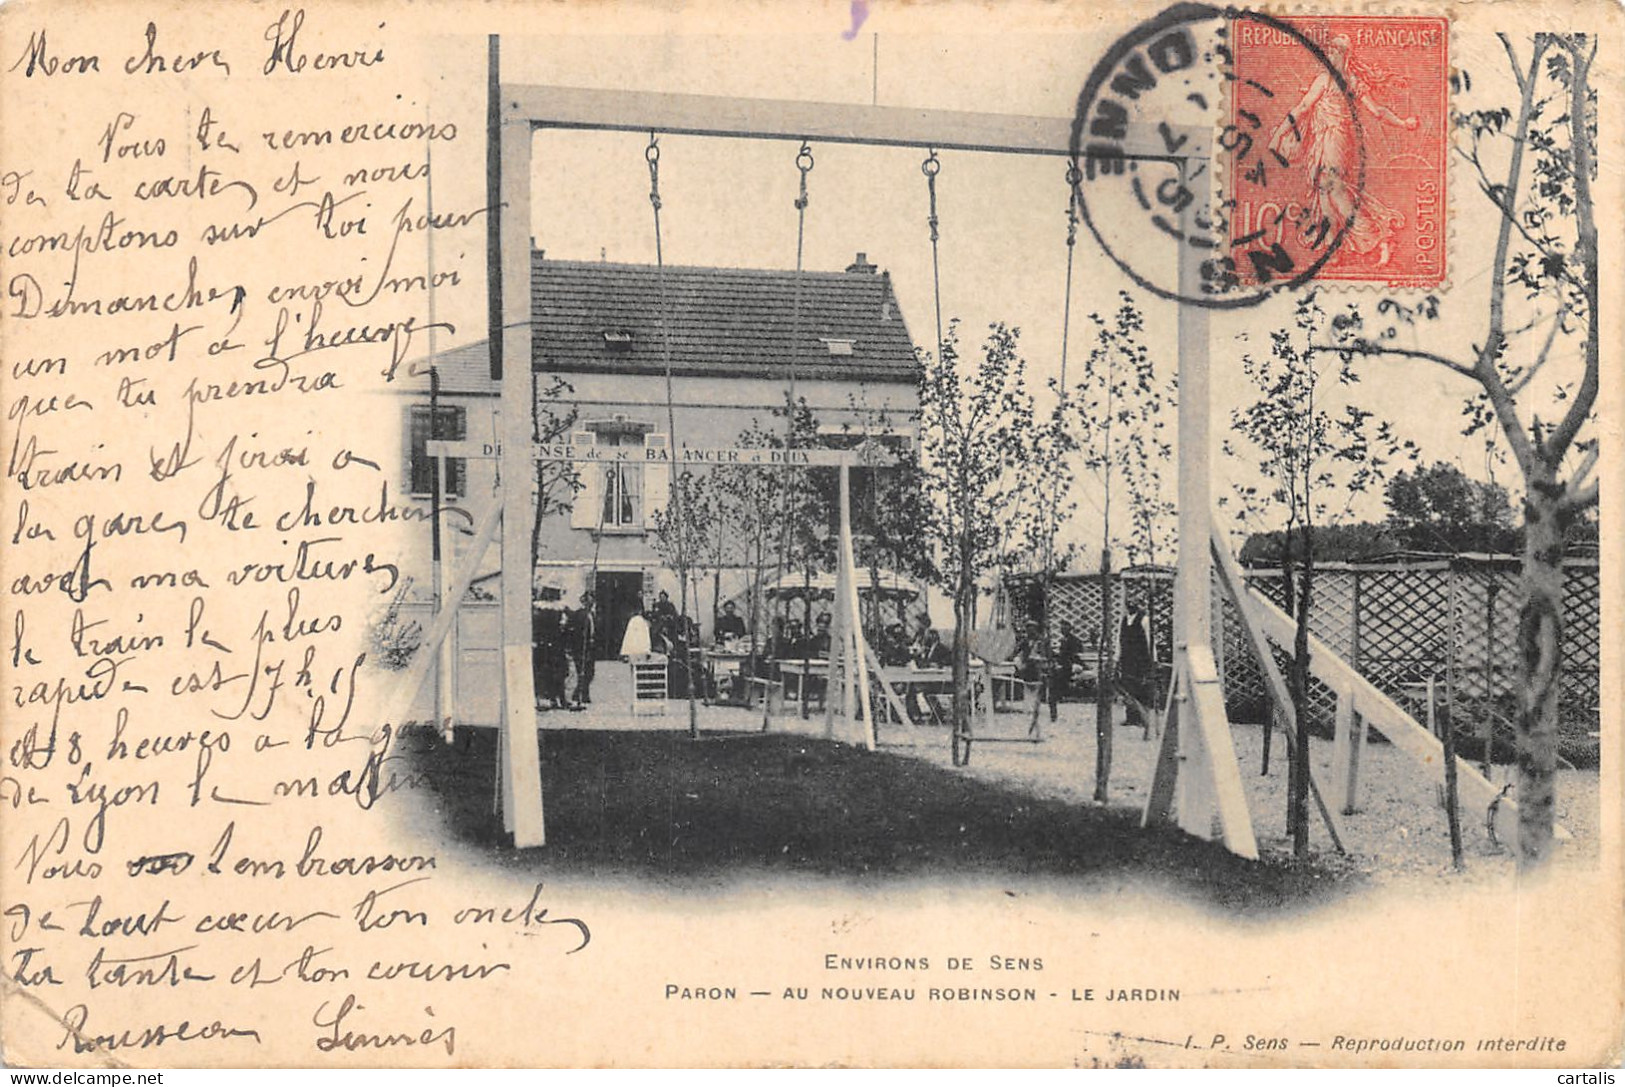 Mon chere Henri
Nous te remercions
de ta carte et nous
comptons sur toi pour
Dimanche, envoi moi
un mot a l'heure
que tu prendra le
train et j'irai a
la gare te chercher
avec ma voiture
le train le plus
rapide est 7h 15
et 8 heures a la gare
de Lyon le matin
Nous t'embrasson
de tout cœur ton oncle
ta tante et ton cousin
Rousseau
REPUBLIQUE FRANÇAISE
10c
POSTES
SENS
YONNE
DÉFENSE de se BALANCER à DEUX
ENVIRONS DE SENS
PARON — AU NOUVEAU ROBINSON - LE JARDIN
I. P. Sens — Reproduction interdite
cartalis